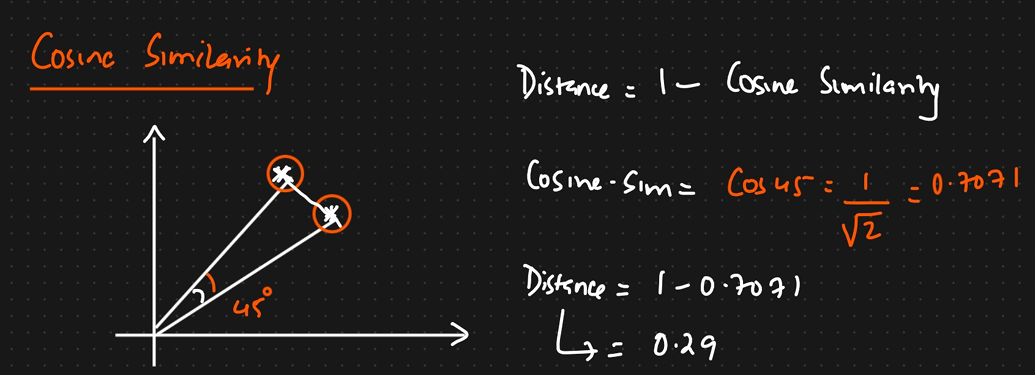 Cosine Similarity
45°
Distance = 1 - Cosine Similarity
Cosine-Sim = Cos 45 = 1/√2 = 0.7071
Distance = 1 - 0.7071
= 0.29